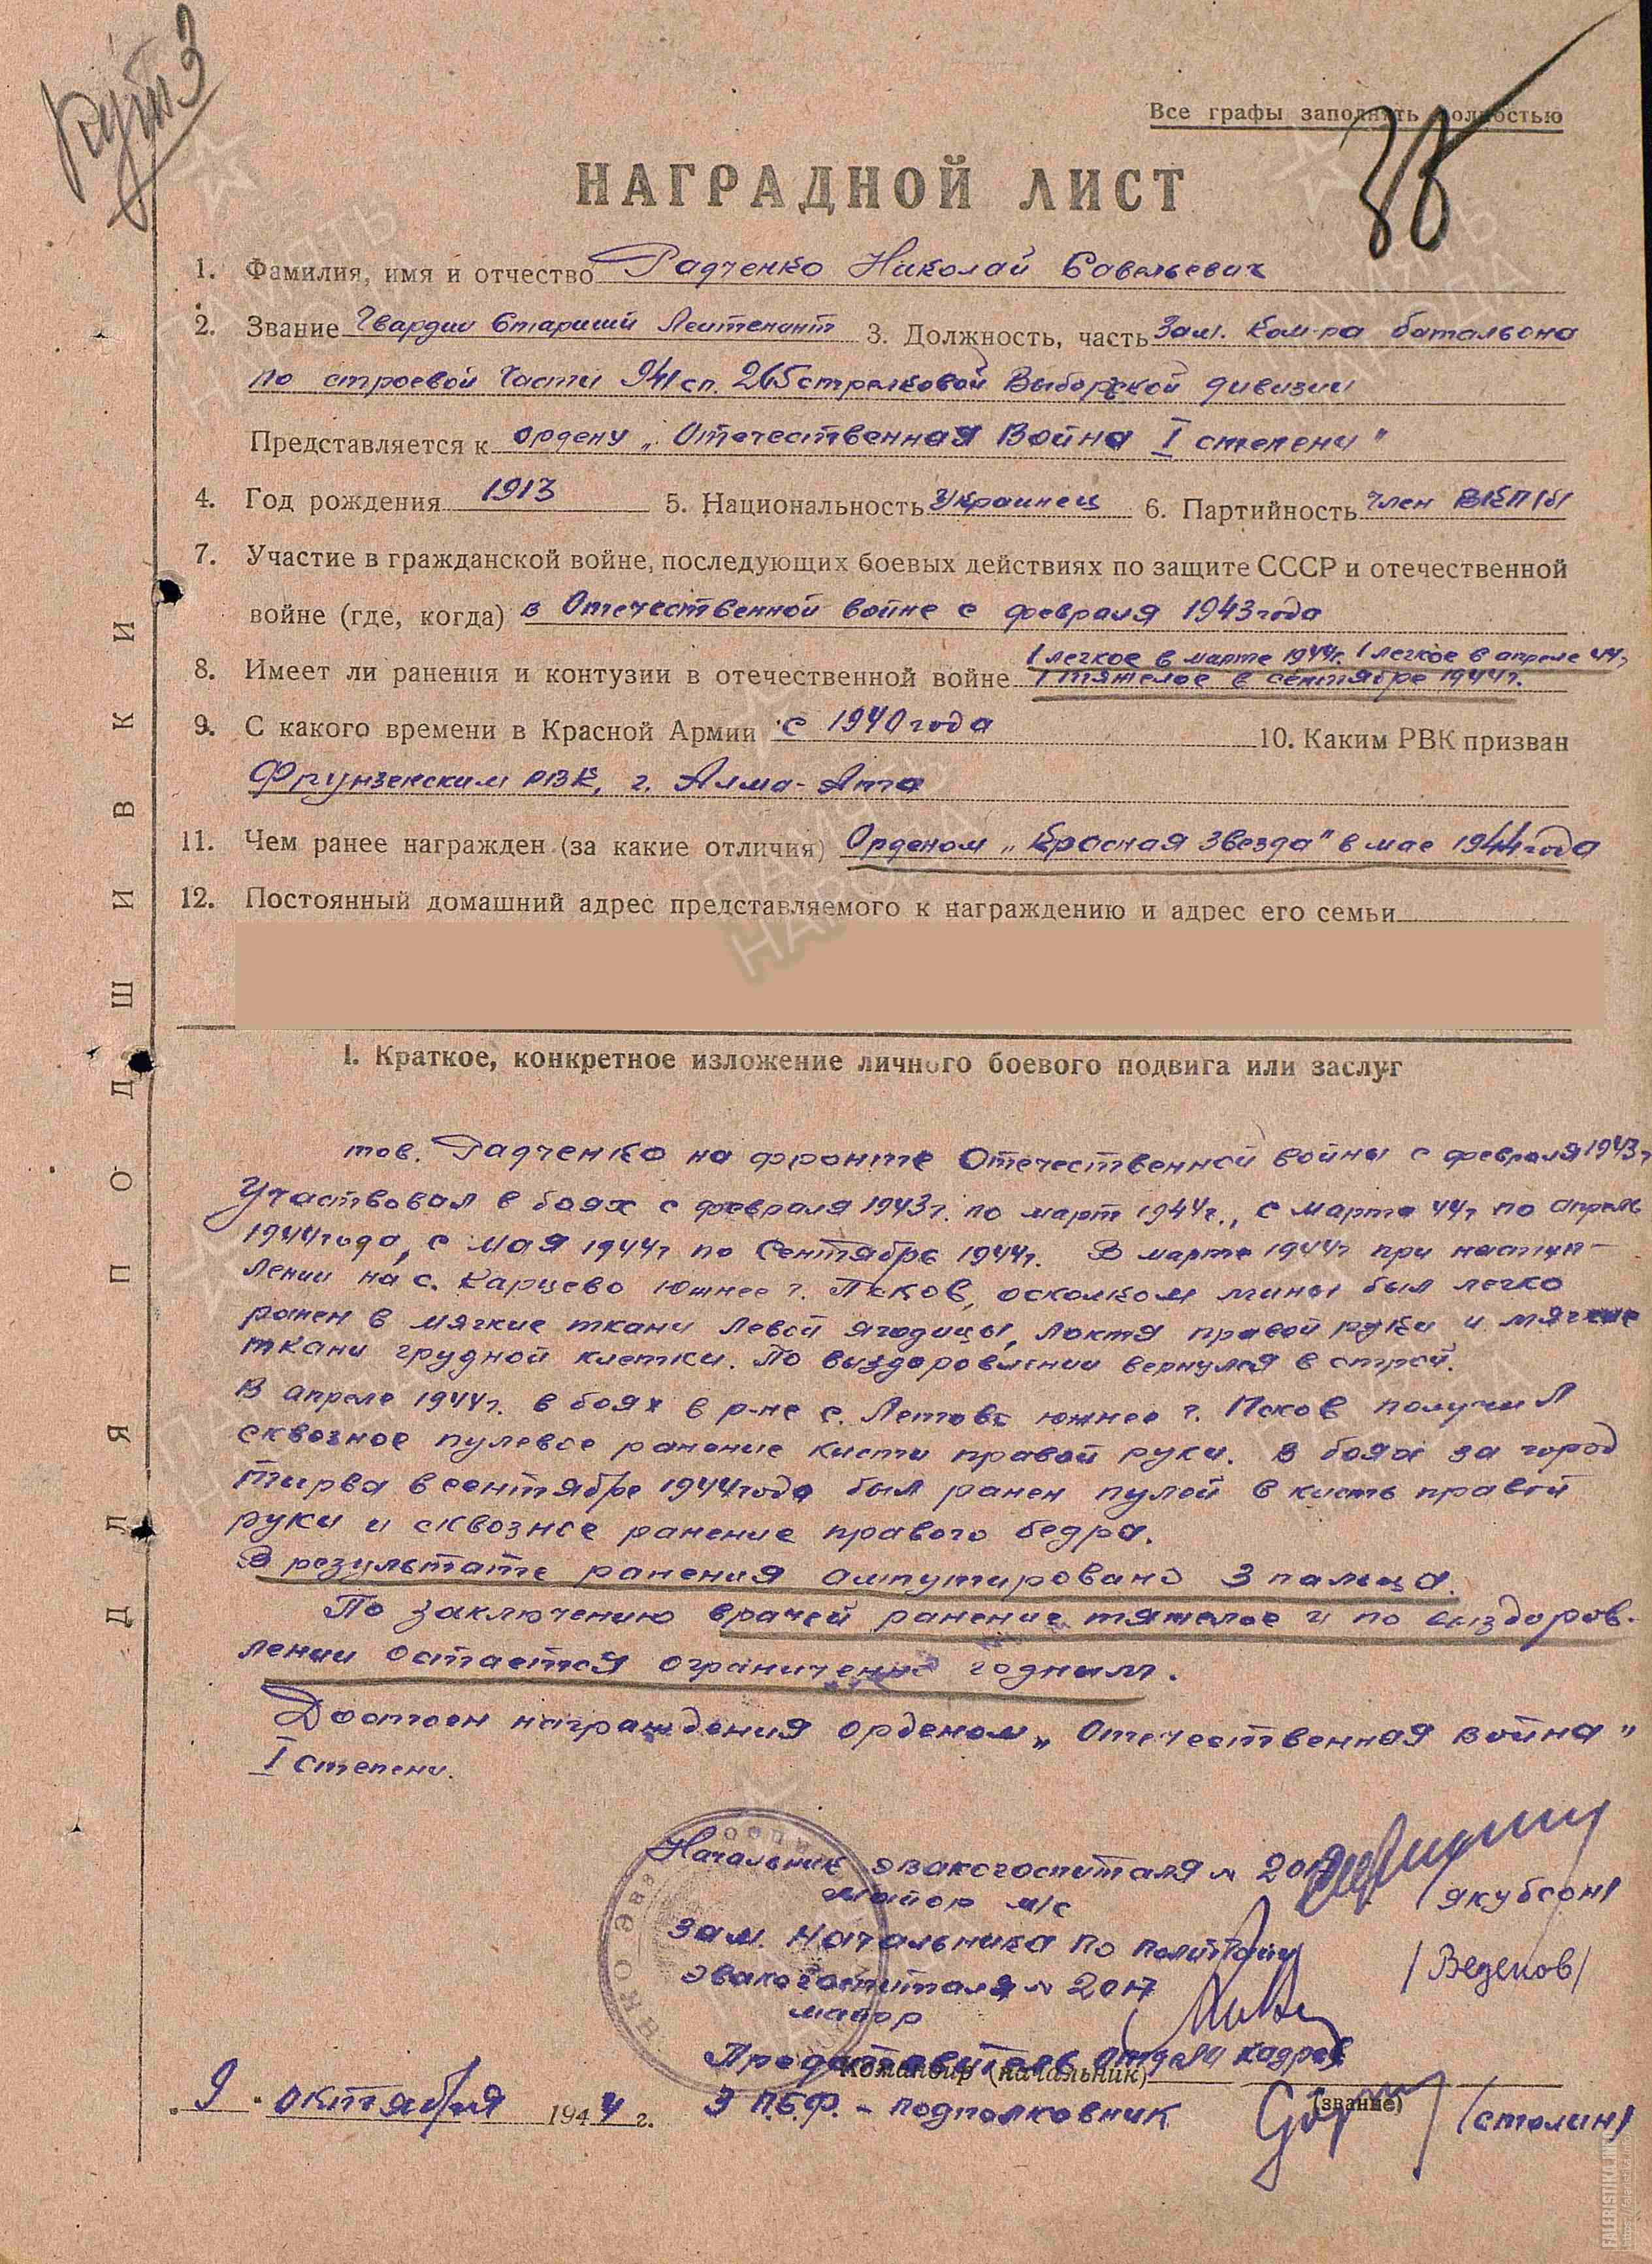 Кут 3
Все графы заполнять полностью
38
НАГРАДНОЙ ЛИСТ
1. Фамилия, имя и отчество Радченко Николай Савельевич
2. Звание Гвардии Старший Лейтенант 3. Должность, часть Зам. Ком-ра батальона
по строевой части 941 сп. 265 стрелковой Выборгской дивизии
Представляется к ордену „Отечественная Война I степени"
4. Год рождения 1913 5. Национальность Украинец 6. Партийность Член ВКП/б/
7. Участие в гражданской войне, последующих боевых действиях по защите СССР и отечественной
войне (где, когда) в Отечественной войне с февраля 1943 года
1 легкое в марте 1944г. 1 легкое в апреле 44г
8. Имеет ли ранения и контузии в отечественной войне 1 тяжелое в сентябре 1944г.
9. С какого времени в Красной Армии с 1940 года 10. Каким РВК призван
Фрунзенским РВК, г. Алма-Ата
11. Чем ранее награжден (за какие отличия) Орденом „Красная Звезда" в мае 1944 года
12. Постоянный домашний адрес представляемого к награждению и адрес его семьи
I. Краткое, конкретное изложение личного боевого подвига или заслуг
тов. Радченко на фронте Отечественной войны с февраля 1943г
Участвовал в боях с февраля 1943г. по март 1944г., с марта 44г по апрель
1944 года, с мая 1944г по Сентябрь 1944г. В марте 1944г при наступ-
лении на с. Карцево южнее г. Псков, осколком мины был легко
ранен в мягкие ткани левой ягодицы, локтя правой руки и мягкие
ткани грудной клетки. По выздоровлении вернулся в строй.
В апреле 1944г. в боях в р-не с. Летово южнее г. Псков получил
сквозное пулевое ранение кисти правой руки. В боях за город
Тырва в сентябре 1944 года был ранен пулей в кисть правой
руки и сквозное ранение правого бедра.
В результате ранения ампутировано 3 пальца.
По заключению врачей ранение тяжелое и по выздоров-
лении остается ограничено годным.
Достоен награждения орденом „Отечественная война"
I степени.
Начальник эвакогоспиталя № 2017
майор м/с /Якубсон/
Зам. Начальника по политчасти
эвакогоспиталя № 2017 /Веденов/
майор
Представитель отдела кадров
Командир (начальник)
(звание)
„9" октября 1944 г. 3 П.Б.Ф. - подполковник /Столин/
ДЛЯ ПОДШИВКИ
ПАМЯТЬ НАРОДА
FALERISTIKA.INFO